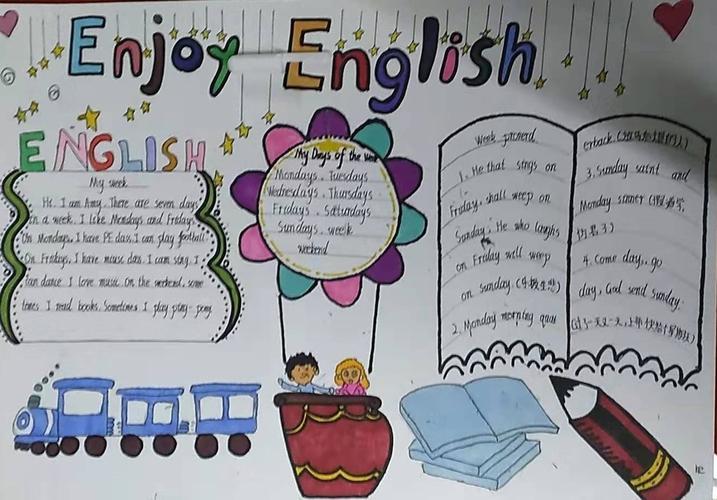 Enjoy English
ENGLISH
My week
Hi. I am Amy. There are seven days
in a week. I like Mondays and Fridays.
On Mondays, I have PE class. I can play football.
On Fridays, I have music class. I am sing. I
can dance. I love music. On the weekend, some
times I read books. Sometimes I play ping-pong
My Days of the week
Mondays. Tuesdays
Wednesdays. Thursdays
Fridays. Saturdays
Sundays. week
weekend
Week proverd
1. He that sings on
Friday, shall weep on
Sunday. He who laughs
on Friday will weep
on sunday.
2. Monday morning quar
erback.
3. Sunday saint and
Monday sinner
4. Come day, go
day, God send sunday.